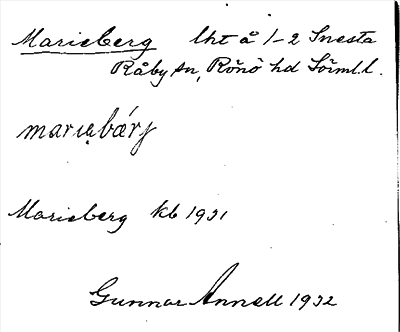 Marieberg lht å 1-2 Snesta
Råby sn, Rönö hd Sörml. l.
mariabärj
Marieberg kb 1931
Gunnar Annell 1932